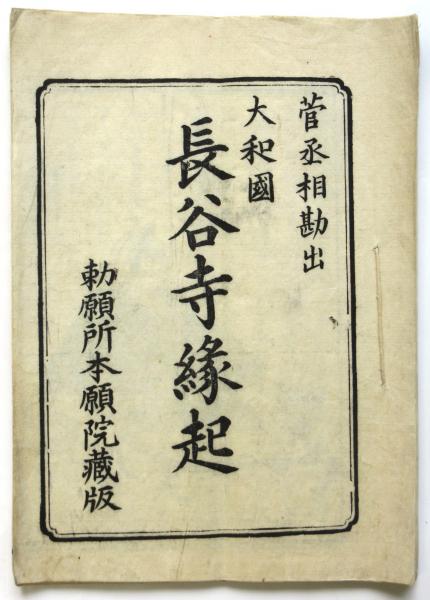 菅丞相勘出
大和國
長谷寺緣起
勅願所本願院藏版